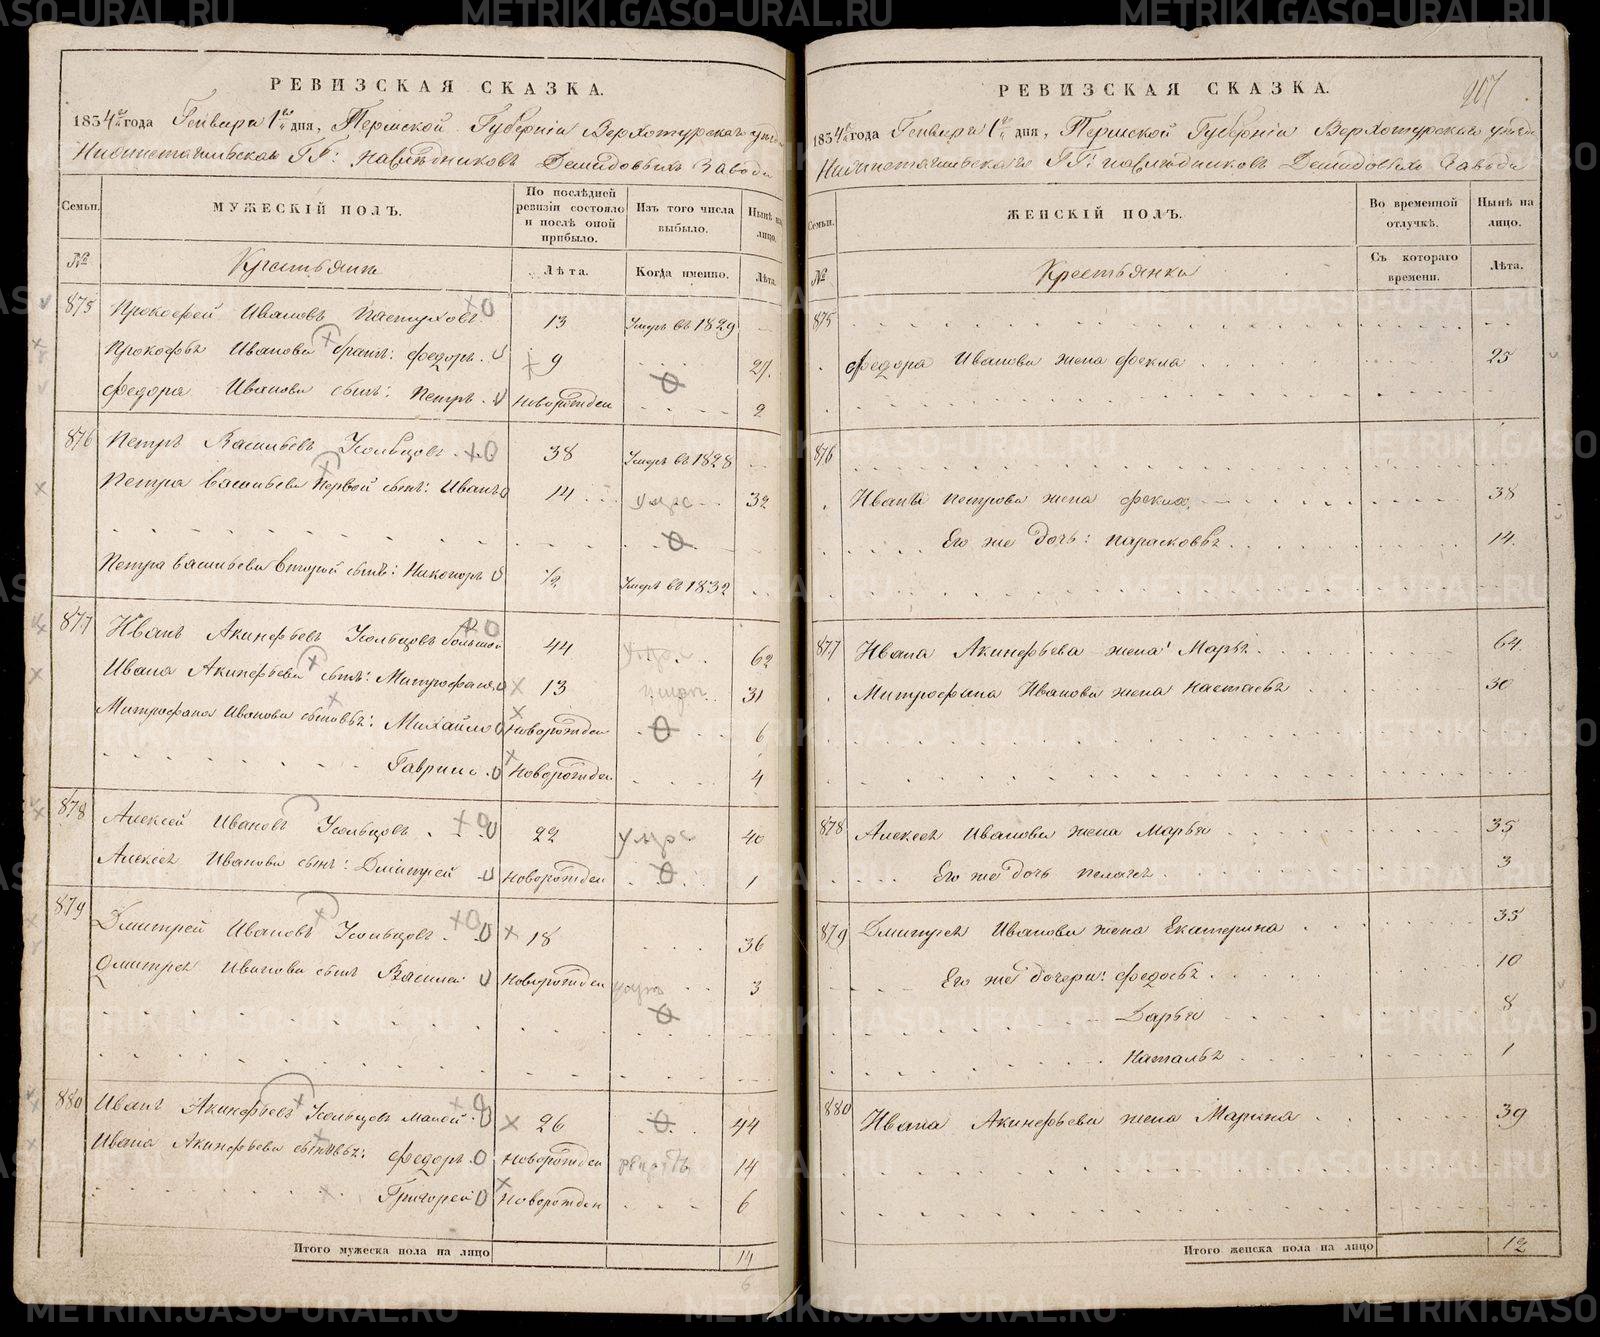 РЕВИЗСКАЯ СКАЗКА.
1834 года Генваря 1 дня, Пермской Губернiи Верхотурскаго
Нижнетагильскаго ГГ: наслѣдниковъ Демидовыхъ Завода
Семьи.
МУЖЕСКIЙ ПОЛЪ.
По послѣдней ревизiи состояло и послѣ оной прибыло.
Изъ того числа выбыло.
Нынѣ на лицо.
№
Крестьяне
Лѣта.
Когда именно.
Лѣта.
875 Прокофей Ивановъ Пастуховъ 13 Умеръ въ 1829
Прокофья Иванова братъ: Федоръ 9 27
Федора Иванова сынъ: Петръ Новорожден 2
876 Петръ Васильевъ Усольцовъ 38 Умеръ въ 1828
Петра Васильева первой сынъ: Иванъ 14 32
Петра Васильева второй сынъ: Никоноръ ½ Умеръ въ 1832
877 Иванъ Акинфьевъ Усольцовъ большой 44 62
Ивана Акинфьева сынъ: Митрофанъ 13 31
Митрофана Иванова сыновья: Михайло Новорожден 6
Гаврило Новорожден 4
878 Алексей Ивановъ Усольцовъ 22 умре 40
Алексея Иванова сынъ: Дмитрей Новорожден 1
879 Дмитрей Ивановъ Усольцовъ 18 36
Дмитрея Иванова сынъ Василей Новорожден 3
880 Иванъ Акинфьевъ Усольцовъ малой 26 44
Ивана Акинфьева сыновья: Федоръ Новорожден 14
Григорей Новорожден 6
Итого мужеска пола на лицо 14
6
207
РЕВИЗСКАЯ СКАЗКА.
1834 года Генваря 1 дня, Пермской Губернiи Верхотурскаго
Нижнетагильскаго ГГ: наслѣдниковъ Демидовыхъ Завода
Семьи.
ЖЕНСКIЙ ПОЛЪ.
Во временной отлучкѣ.
Нынѣ на лицо.
№
Крестьянки
Съ котораго времени.
Лѣта.
875
Федора Иванова жена Фекла 25
876
Ивана Петрова жена Фекла 38
Его же дочь: Парасковья 14
877 Ивана Акинфьева жена Марья 64
Митрофана Иванова жена Настасья 30
878 Алексея Иванова жена Марья 35
Его же дочь Пелагея 3
879 Дмитрея Иванова жена Екатерина 35
Его же дочери: Федосья 10
Дарья 8
Наталья 1
880 Ивана Акинфьева жена Марина 39
Итого женска пола на лицо 12
METRIKI.GASO-URAL.RU